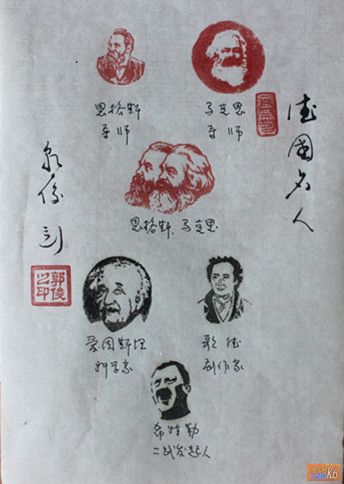 德國名人
恩格斯
导师
马克思
导师
恩格斯 马克思
爱因斯坦
科学家
歌德
剧作家
希特勒
二战发起人
郭俊
之印
K6